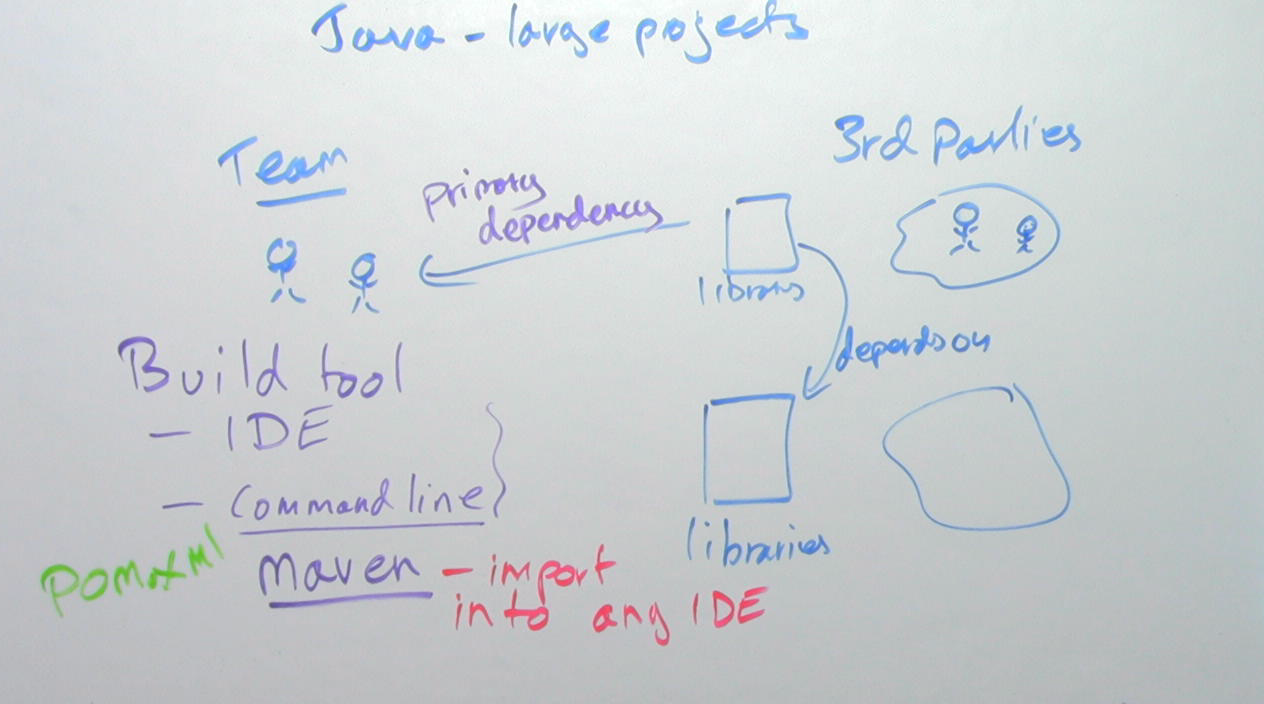 Java - large projects
Team
3rd Parties
primary
dependency
library
depends on
Build tool
- IDE
- Command line
libraries
pom.xml
Maven - import
into any IDE